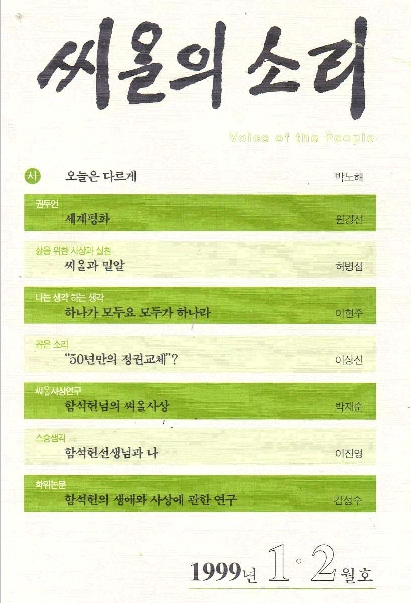 씨올의 소리
Voice of the People
시 오늘은 다르게 박노해
권두언
세계평화 원경선
삶을 위한 사상과 실천
씨올과 밀알 허병섭
나는 생각 하는 생각
하나가 모두요 모두가 하나라 이현주
곧은 소리
"50년만의 정권교체"? 이상신
씨올사상연구
함석헌님의 씨올사상 박재순
스승생각
함석헌선생님과 나 이진영
학위논문
함석헌의 생애와 사상에 관한 연구 김성수
1999년 1·2월호